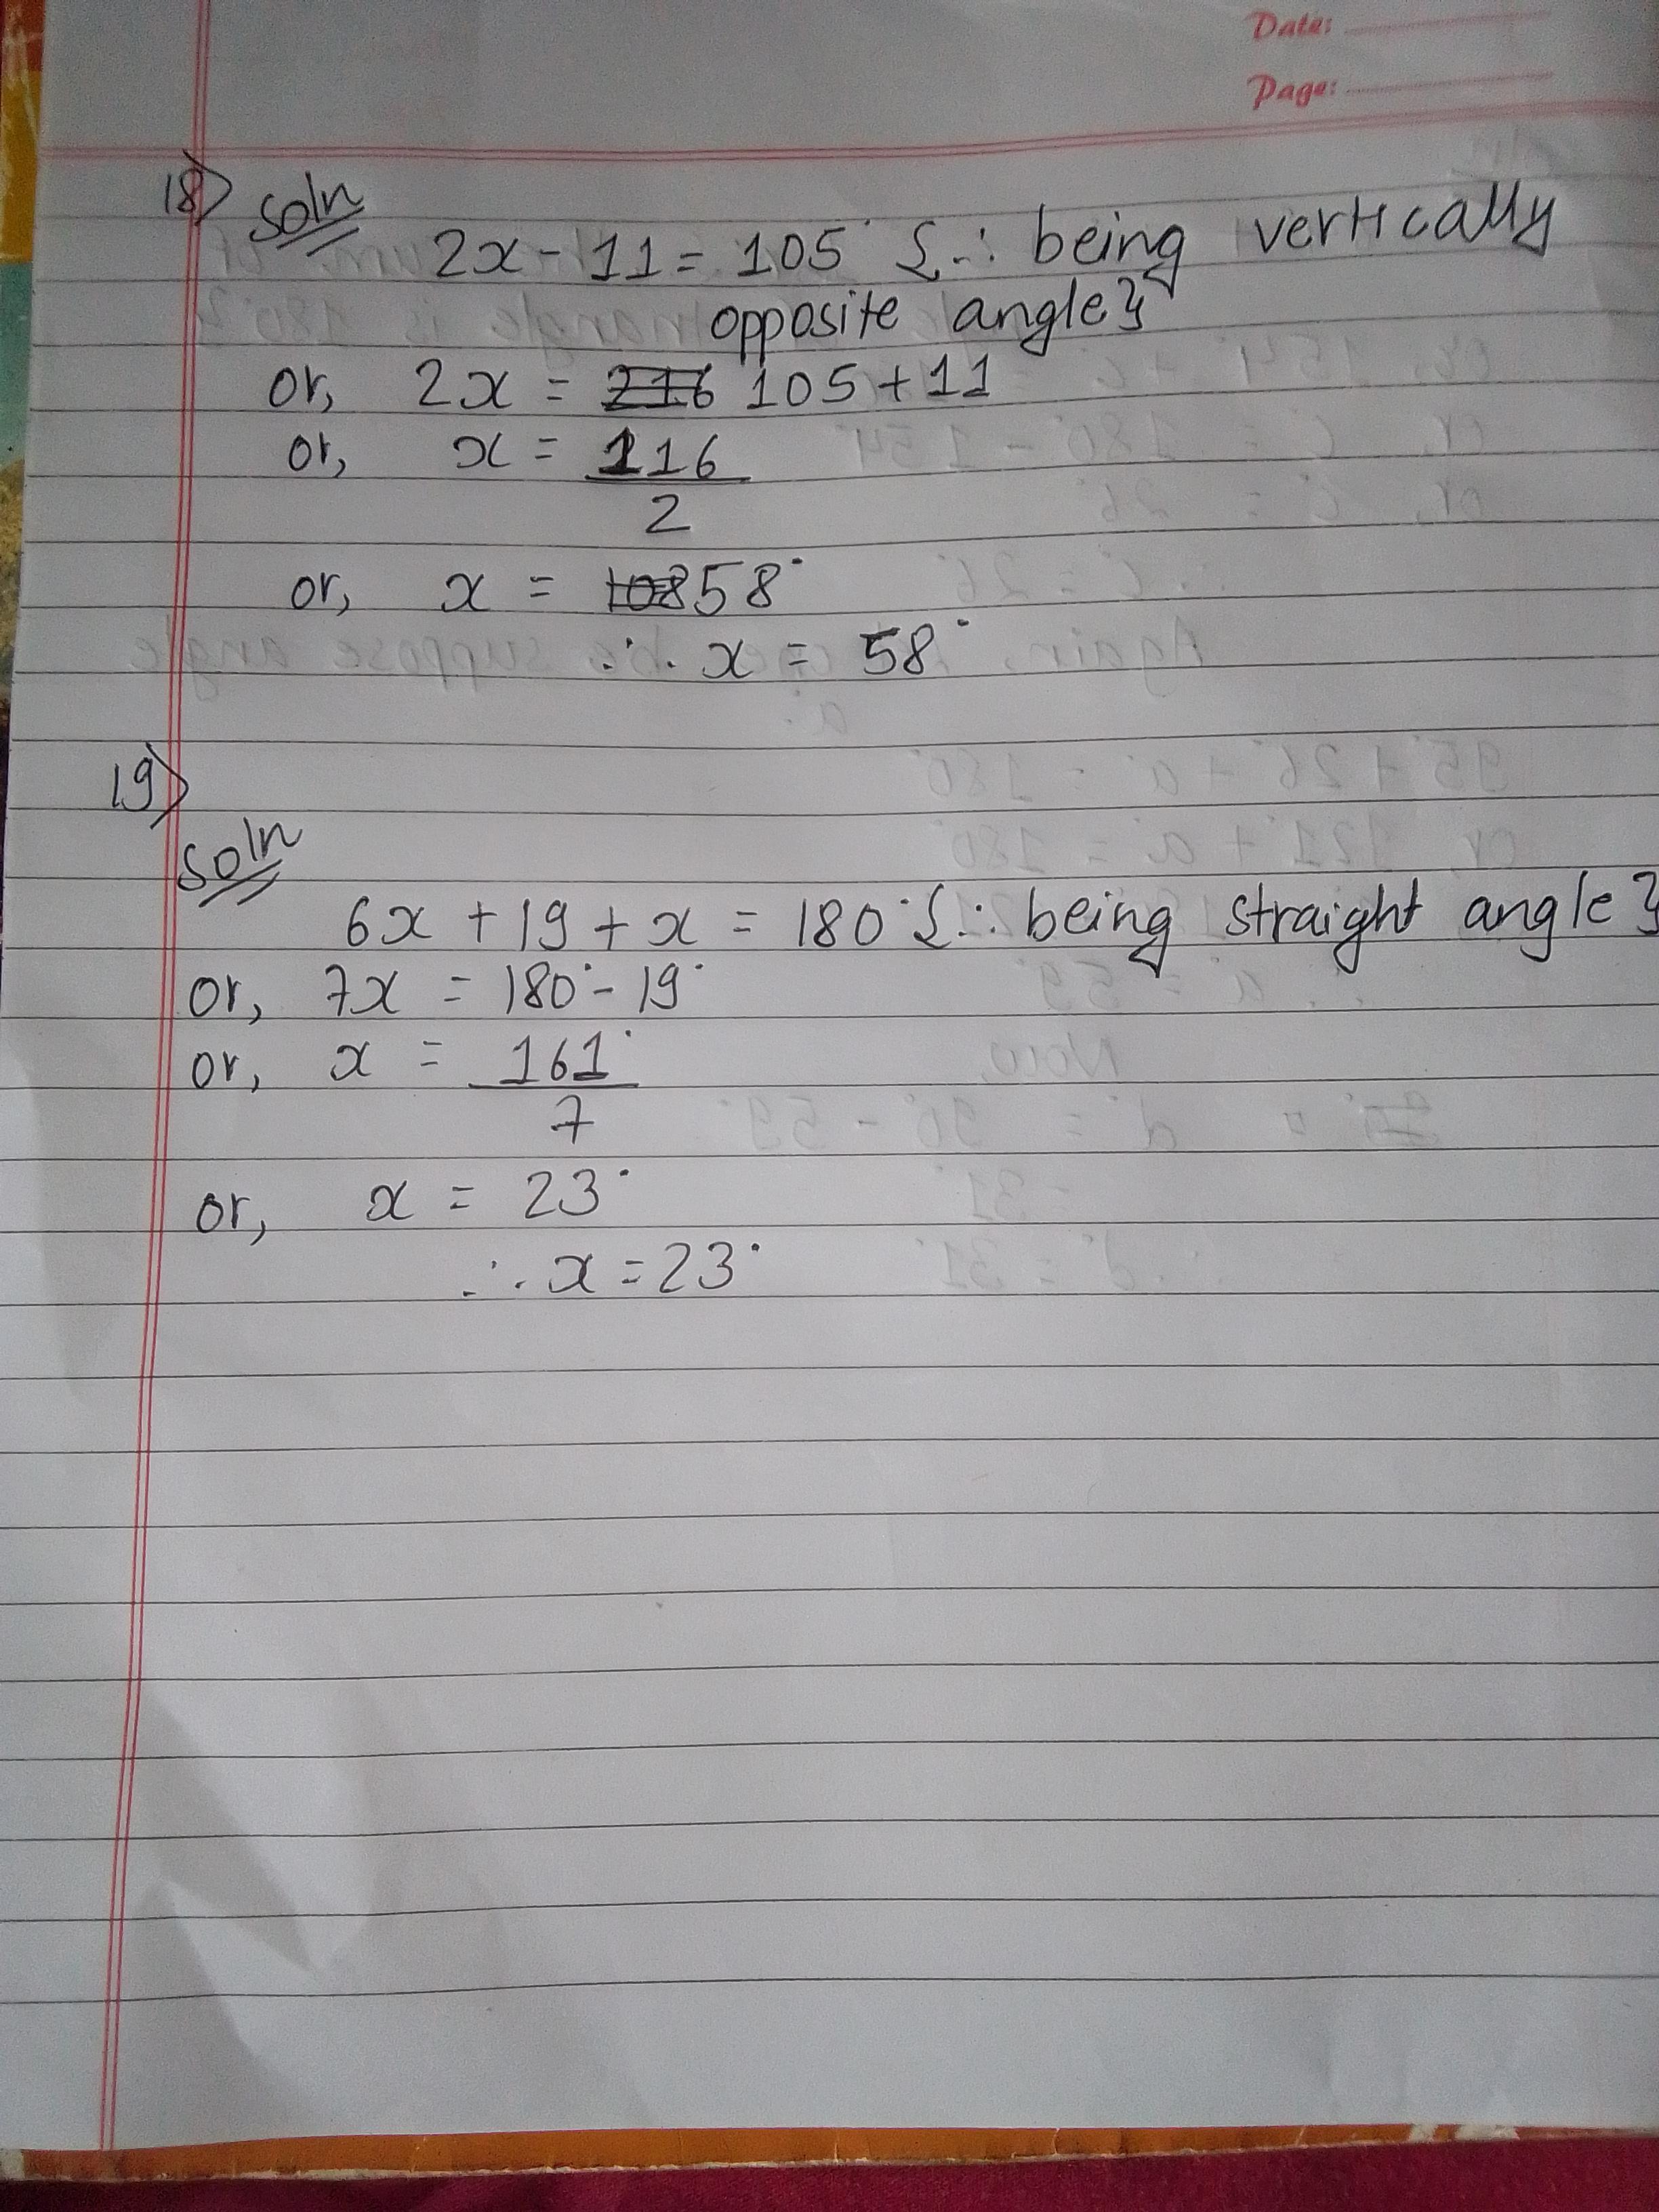 Date:
Page:
18) Soln
2x - 11 = 105° {∵ being vertically
opposite angle}
or, 2x = 216 105 + 11
or, x = 116
2
or, x = 108 58°
∴ x = 58°
19)
Soln
6x + 19 + x = 180° {∵ being straight angle}
or, 7x = 180° - 19°
or, x = 161°
7
or, x = 23°
∴ x = 23°